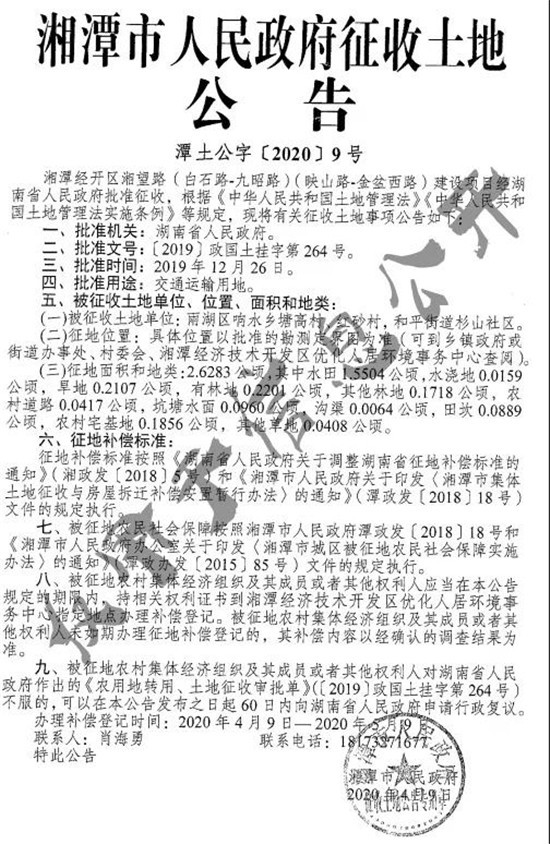 湘潭市人民政府征收土地
公 告
潭土公字〔2020〕9号
湘潭经开区湘望路（白石路-九昭路）（映山路-金盆西路）建设项目经湖
南省人民政府批准征收，根据《中华人民共和国土地管理法》《中华人民共和
国土地管理法实施条例》等规定，现将有关征收土地事项公告如下：
一、批准机关：湖南省人民政府。
二、批准文号：〔2019〕政国土挂字第264号。
三、批准时间：2019年12月26日。
四、批准用途：交通运输用地。
五、被征收土地单位、位置、面积和地类：
(一)被征收土地单位：雨湖区响水乡塘高村、砂村，和平街道杉山社区。
(二)征地位置：具体位置以批准的勘测定界图为准（可到乡镇政府或
街道办事处、村委会、湘潭经济技术开发区优化人居环境事务中心查阅）。
(三)征地面积和地类:2.6283公顷,其中水田1.5504公顷,水浇地0.0159
公顷，旱地0.2107公顷，有林地0.2201公顷，其他林地0.1718公顷，农
村道路0.0417公顷，坑塘水面0.0960公顷，沟渠0.0064公顷，田坎0.0889
公顷，农村宅基地0.1856公顷，其他草地0.0408公顷。
六、征地补偿标准：
征地补偿标准按照《湖南省人民政府关于调整湖南省征地补偿标准的
通知》（湘政发〔2018〕5号）和《湘潭市人民政府关于印发〈湘潭市集体
土地征收与房屋拆迁补偿安置暂行办法〉的通知》（潭政发〔2018〕18号）
文件的规定执行。
七、被征地农民社会保障按照湘潭市人民政府潭政发〔2018〕18号和
《湘潭市人民政府办公室关于印发〈湘潭市城区被征地农民社会保障实施
办法〉的通知》（潭政办发〔2015〕85号）文件的规定执行。
八、被征地农村集体经济组织及其成员或者其他权利人应当在本公告
规定的期限内，持相关权利证书到湘潭经济技术开发区优化人居环境事
务中心指定地点办理补偿登记。被征地农村集体经济组织及其成员或者其
他权利人未如期办理征地补偿登记的，其补偿内容以经确认的调查结果为
准。
九、被征地农村集体经济组织及其成员或者其他权利人对湖南省人民
政府作出的《农用地转用、土地征收审批单》（〔2019〕政国土挂字第264号）
不服的，可以在本公告发布之日起60日内向湖南省人民政府申请行政复议。
办理补偿登记时间：2020年4月9日—2020年5月9日
联系人：肖海勇 联系电话：18173271677
特此公告
湘潭市人民政府
2020年4月9日
湘潭市人民政府
征收土地公告专用章
仅用于信息公开